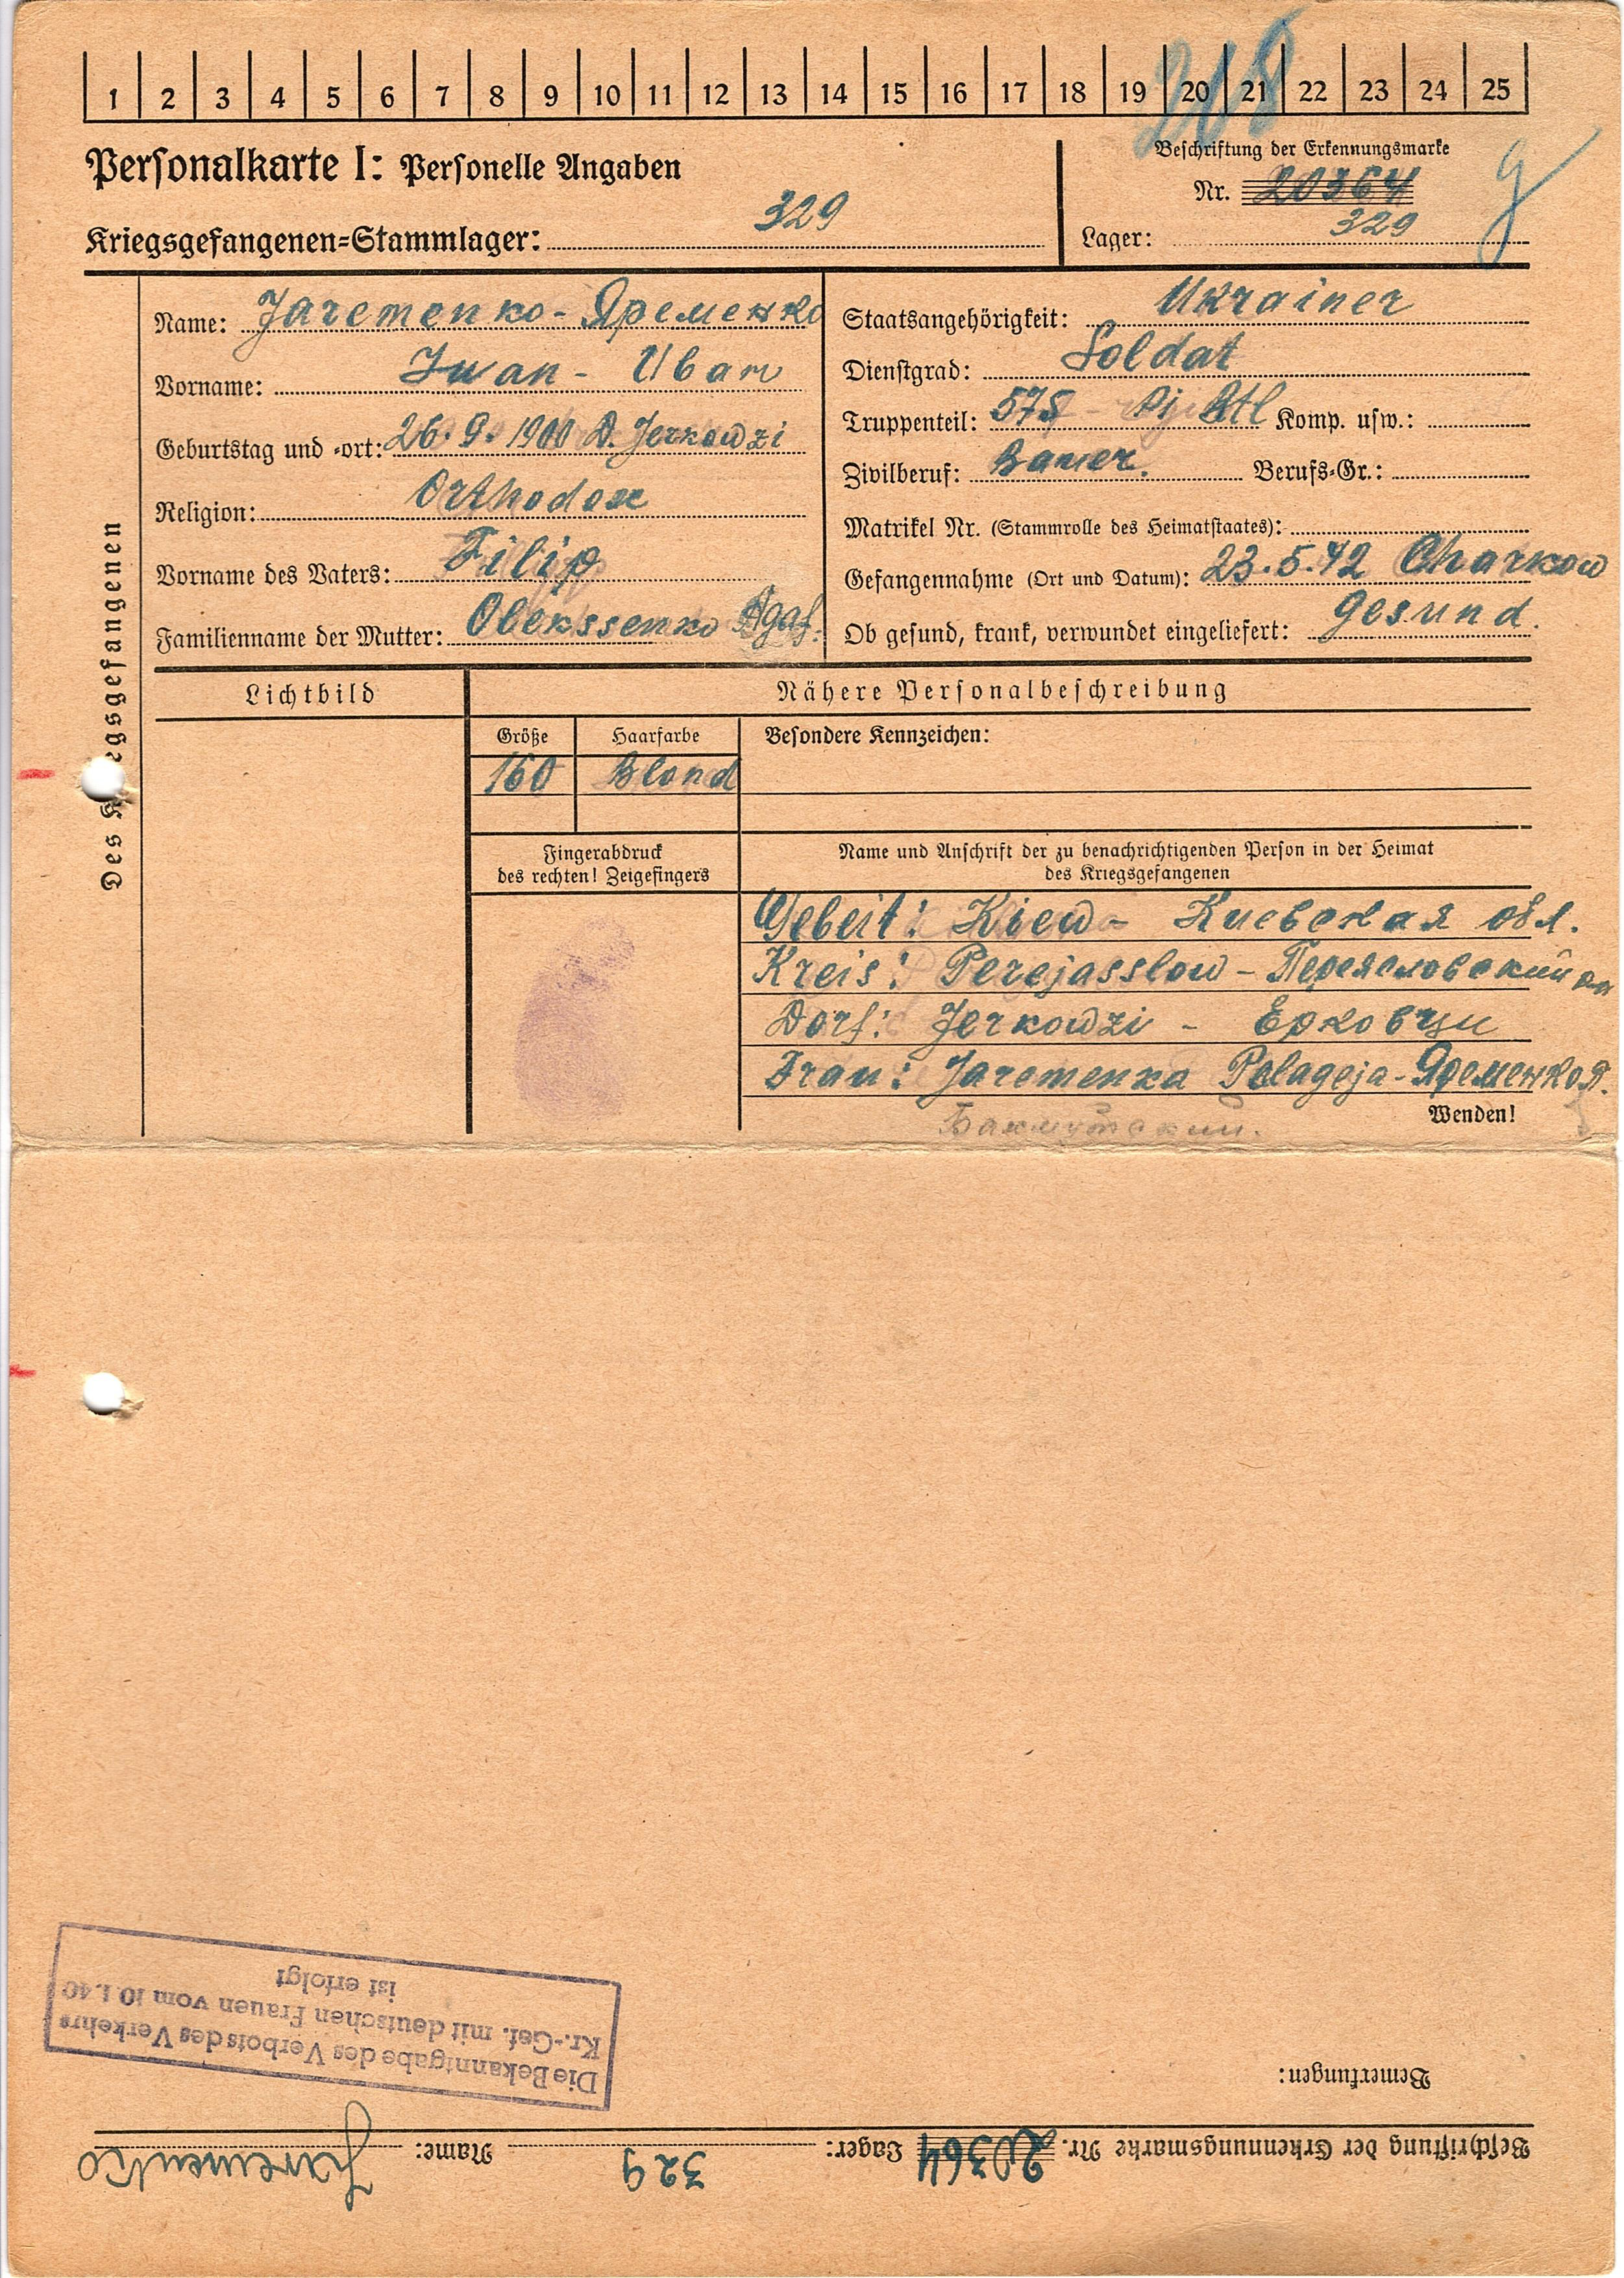 1 2 3 4 5 6 7 8 9 10 11 12 13 14 15 16 17 18 19 20 21 22 23 24 25
Personalkarte I: Personelle Angaben
Kriegsgefangenen-Stammlager: 329
Beschriftung der Erkennungsmarke
Nr. 20364
Lager: 329
Des Kriegsgefangenen
Name: Jaremenko - Яременко
Vorname: Iwan - Иван
Geburtstag und -ort: 26.9.1900 D. Jerkowzi
Religion: Orthodox
Vorname des Vaters: Filip
Familienname der Mutter: Olekssenko Agaf.
Staatsangehörigkeit: Ukrainer
Dienstgrad: Soldat
Truppenteil: 575 Pj Btl Komp. usw.:
Zivilberuf: Bauer. Berufs-Gr.:
Matrikel Nr. (Stammrolle des Heimatstaates):
Gefangennahme (Ort und Datum): 23.5.42 Charkow
Ob gesund, krank, verwundet eingeliefert: Gesund.
Lichtbild
Nähere Personalbeschreibung
Größe Haarfarbe Besondere Kennzeichen:
160 Blond
Fingerabdruck
des rechten! Zeigefingers
Name und Anschrift der zu benachrichtigenden Person in der Heimat
des Kriegsgefangenen
Gebeit: Kiew - Киевская обл.
Kreis: Perejasslow - Переясловский рн
Dorf: Jerkowzi - Ерковци
Frau: Jaremenka Pelageja - Яременко П.
Wenden!
Бахмутский.
Die Bekanntgabe des Verbots des Verkehrs
Kr.-Gef. mit deutschen Frauen vom 10.1.40
ist erfolgt
Bemerkungen:
Beschriftung der Erkennungsmarke Nr. 20364 Lager: 329 Name: Jaremenko